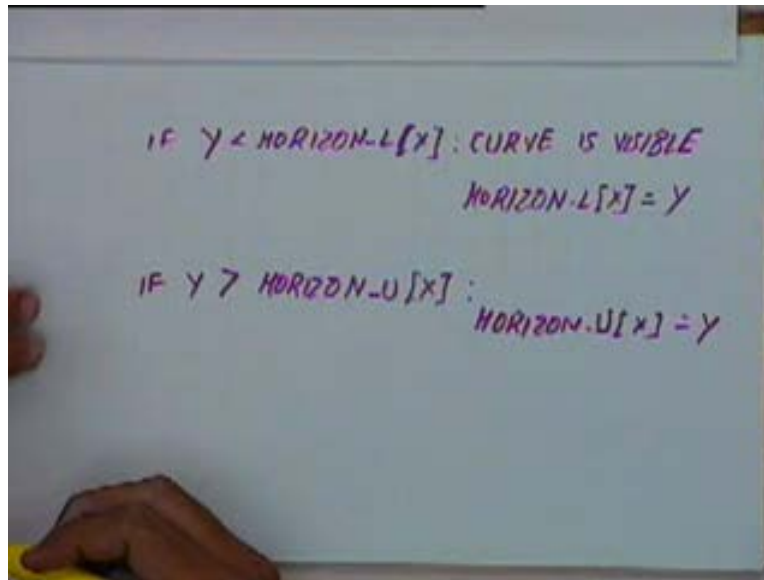 IF Y < HORIZON-L[X] : CURVE IS VISIBLE
HORIZON-L[X] = Y
IF Y > HORIZON-U[X] :
HORIZON-U[X] = Y